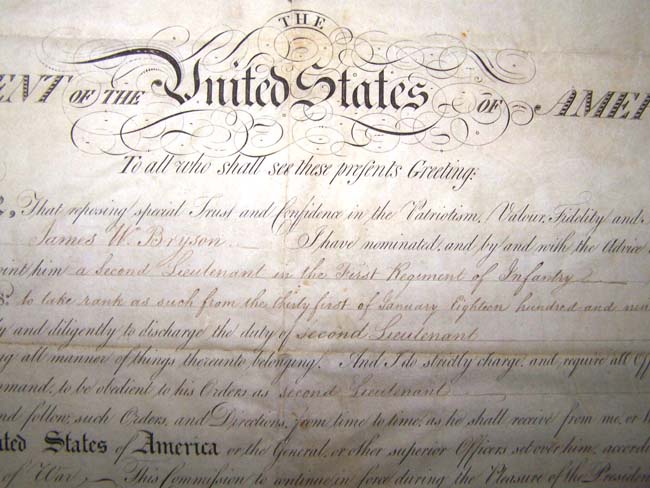 THE
ENT OF THE United States OF AMER
To all who shall see these presents Greeting:
That reposing special Trust and Confidence in the Patriotism, Valour, Fidelity and
James W. Bryson I have nominated, and by and with the Advice
oint him a Second Lieutenant in the First Regiment of Infantry
to take rank as such from the thirty first of January Eighteen hundred and nin
ly and diligently to discharge the duty of Second Lieutenant
ng all manner of things thereunto belonging. And I do strictly charge, and require all Off
mmand, to be obedient to his Orders as Second Lieutenant
nd follow, such Orders, and Directions, from time to time, as he shall receive from me, or
ited States of America or the General, or other superior Officers set over him, accord
of War, This Commission to continue in force during the Pleasure of the Presiden